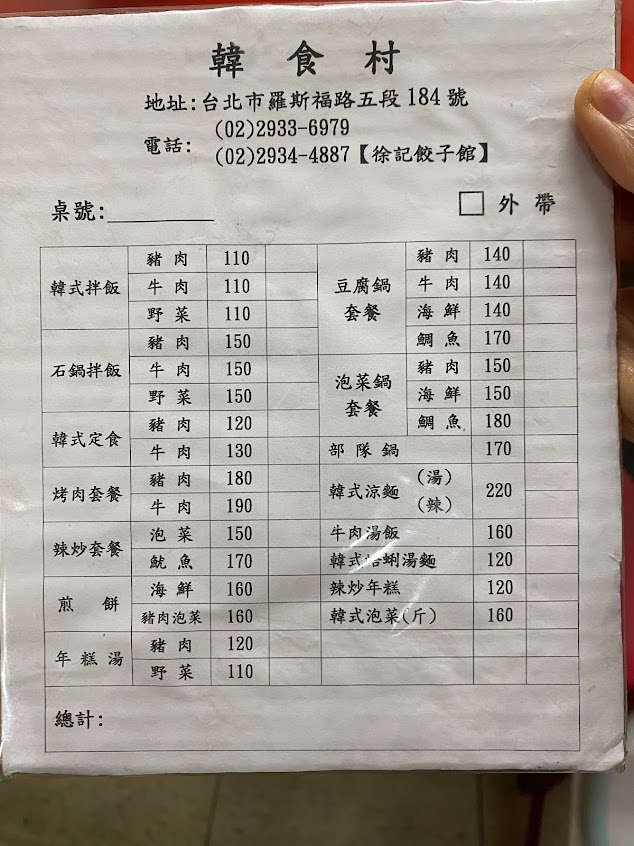 韓食村
地址:台北市羅斯福路五段184號
電話: (02)2933-6979
(02)2934-4887【徐記餃子館】
桌號:
外帶
韓式拌飯 豬肉 110
牛肉 110
野菜 110
石鍋拌飯 豬肉 150
牛肉 150
野菜 150
韓式定食 豬肉 120
牛肉 130
烤肉套餐 豬肉 180
牛肉 190
辣炒套餐 泡菜 150
魷魚 170
煎餅 海鮮 160
豬肉泡菜 160
年糕湯 豬肉 120
野菜 110
豆腐鍋套餐 豬肉 140
牛肉 140
海鮮 140
鯛魚 170
泡菜鍋套餐 豬肉 150
海鮮 150
鯛魚 180
部隊鍋 170
韓式涼麵 (湯) (辣) 220
牛肉湯飯 160
韓式蛤蜊湯麵 120
辣炒年糕 120
韓式泡菜(斤) 160
總計: